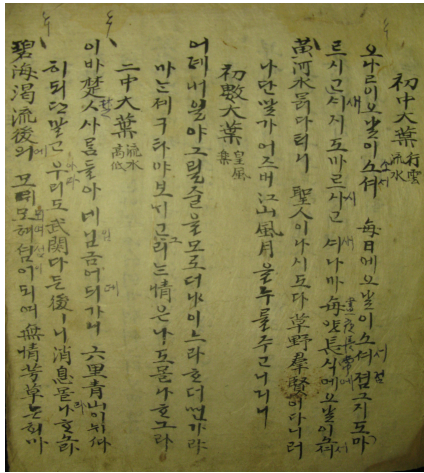 初中大葉 行雲流水
오나리 오날이쇼셔 每日에 오날이쇼셔 졈그지도 마
르시고 새지도 마르시고 새나마 每양 長식에 오날이쇼셔
黃河水 묽다터니 聖人이 나시도다 草野群賢이 다 니러
나단 말가 어즈버 江山風月을 누를 주고 니거니
初數大葉 皇風樂
어뎨 내 일이야 그릴 줄을 모로더냐 이스라 ᄒᆞ더면 가랴
마는 졔 구ᄐᆞ야 보ᄂᆡ고 그리는 情은 나도 몰나 ᄒᆞ노라
二中大葉 流水高低
이바 楚人사ᄅᆞᆷ들아 네 님금 어듸 가니 六里靑山이 뉘 ᄯᅡ
히 되단 말고 우리도 武關 다든 後ㅣ니 消息 몰나 ᄒᆞ노라
碧海渴流後의 모ᄅᆡ 모혀 섬이 되여 無情芳草는 ᄒᆡ마